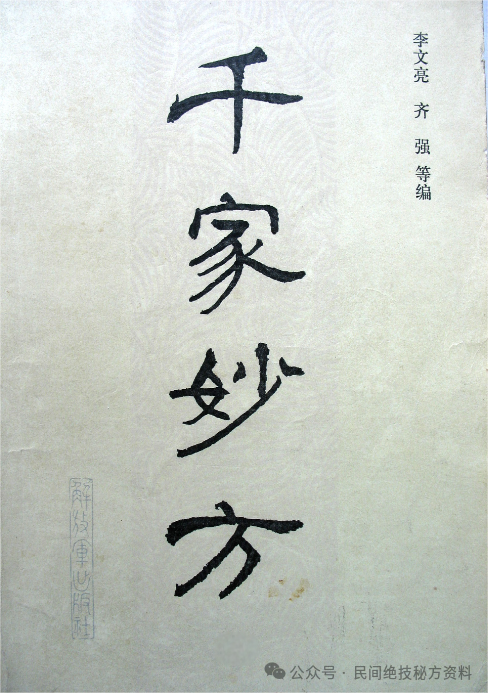 李文亮 齐强 等编
千家妙方
解放军出版社
公众号·民间绝技秘方资料